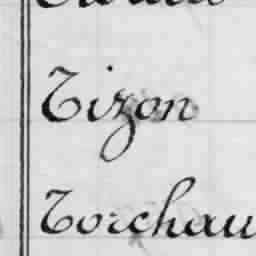 Tizon
Torchau